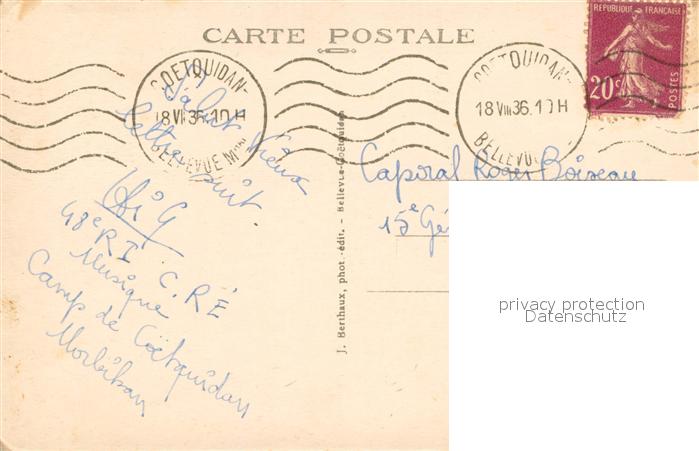 CARTE POSTALE
COETQUIDAN-
18 VIII 36.10 H
BELLEVUE MBAN
COETQUIDAN-
18 VIII 36.10 H
BELLEVUE
REPUBLIQUE FRANÇAISE
20c
POSTES
Salut Vieux
Lettre suit.
48e RI C.RÉ
Musique
Camp de Coëtquidan
Morbihan
J. Berthaux, phot.-édit. - Bellevue-Coëtquidan
Caporal Roger Boiseau
15e Gé
privacy protection
Datenschutz